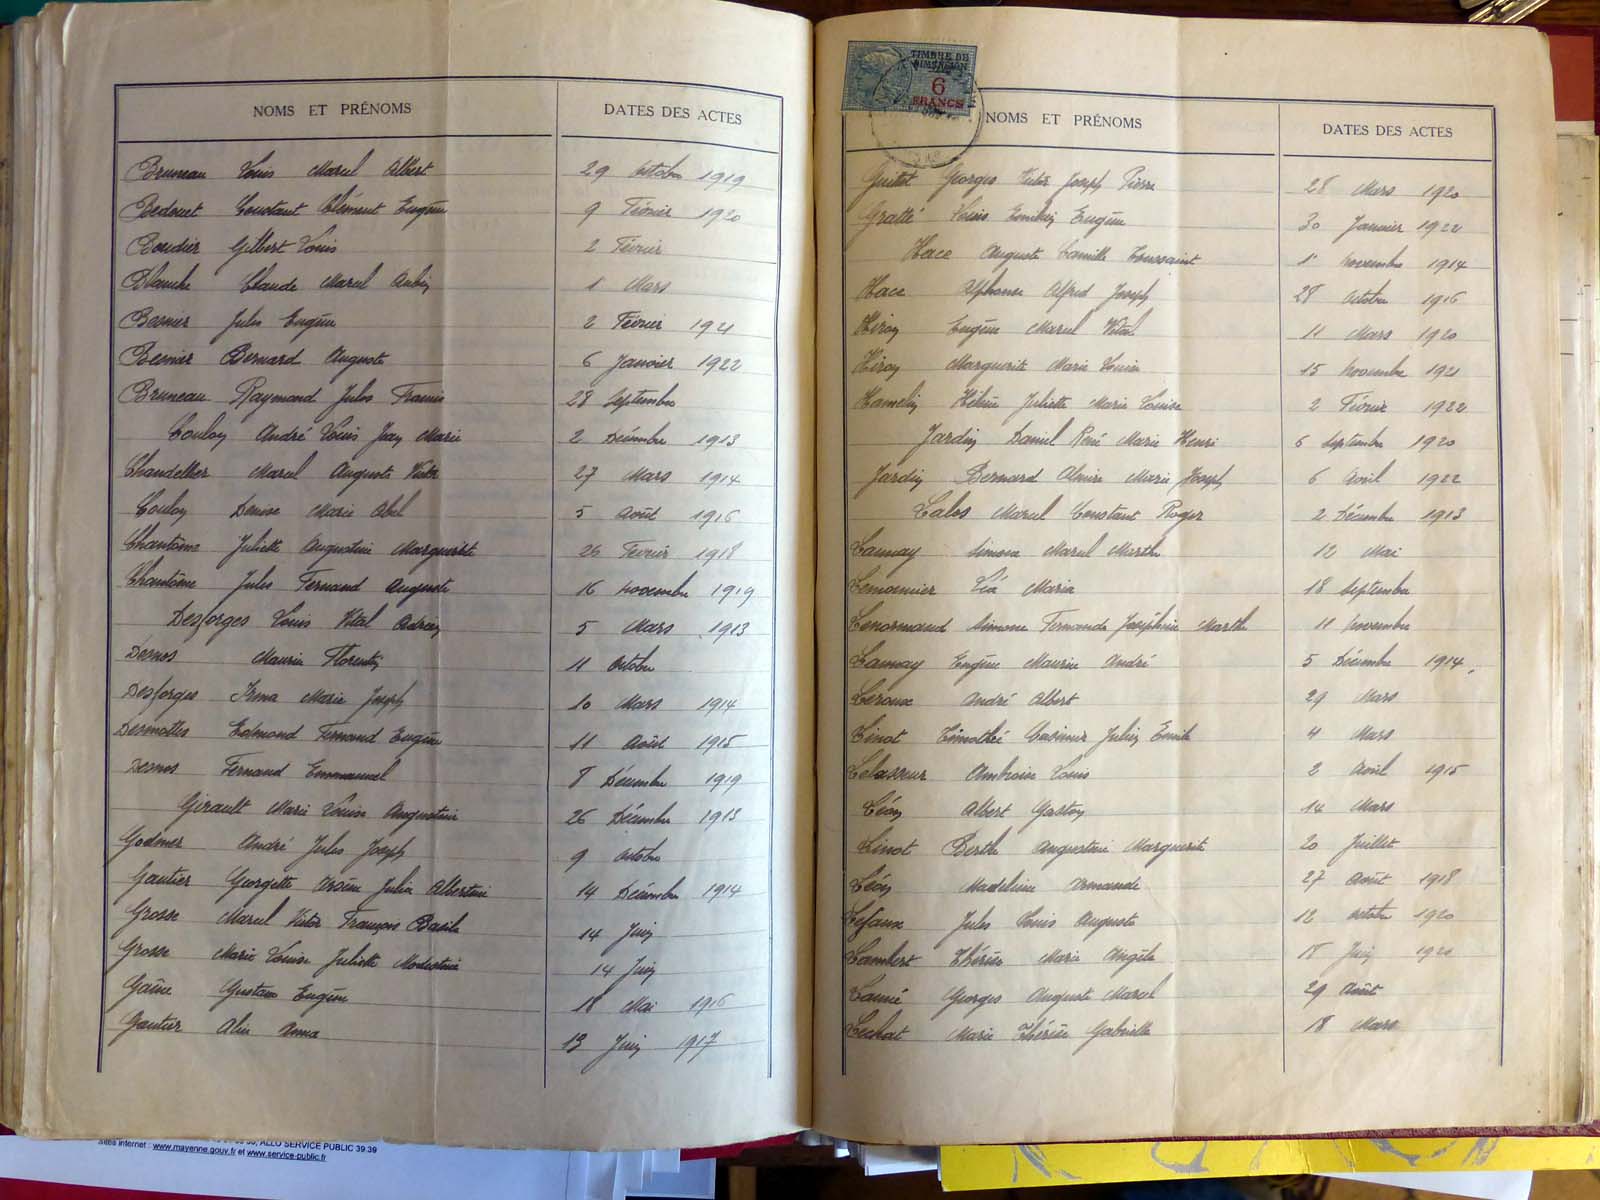 NOMS ET PRÉNOMS DATES DES ACTES
Bruneau Louis Marcel Albert 29 Octobre 1919
Bedouet Constant Clément Eugène 9 Février 1920
Boudier Gilbert Louis 2 Février
Blanche Claude Marcel Aubin 1 Mars
Besnier Jules Eugène 2 Février 1921
Besnier Bernard Auguste 6 Janvier 1922
Bruneau Raymond Jules Francis 28 Septembre
Coulon André Louis Jean Marie 2 Décembre 1913
Chandellier Marcel Auguste Victor 27 Mars 1914
Coulon Denise Marie Abel 5 Août 1916
Chantôme Juliette Augustine Marguerite 26 Février 1918
Chantôme Jules Fernand Auguste 16 Novembre 1919
Desforges Louis Vital Adrien 5 Mars 1913
Desnos Maurice Florentin 11 Octobre
Desforges Irma Marie Joseph 10 Mars 1914
Desmottes Edmond Fernand Eugène 11 Août 1915
Desnos Fernand Emmanuel 8 Décembre 1919
Girault Marie Louise Augustine 26 Décembre 1913
Godmer André Jules Joseph 9 Octobre
Gautier Georgette Julia Albertine 14 Décembre 1914
Grosse Marcel Victor François Basile 14 Juin
Grosse Marie Louise Juliette Modestine 14 Juin
Gaîne Gustave Eugène 18 Mai 1916
Gautier Alice Anna 13 Juin 1917
TIMBRE DE DIMENSION
6
FRANCS
NOMS ET PRÉNOMS DATES DES ACTES
Guittet Georges Victor Joseph Pierre 28 Mars 1920
Gratté Louis Eugène 30 Janvier 1922
Hace Auguste Camille Toussaint 1er Novembre 1914
Hace Alphonse Alfred Joseph 28 Octobre 1916
Hiron Eugène Marcel Vital 11 Mars 1920
Hiron Marguerite Marie Louise 15 Novembre 1921
Hamelin Hélène Juliette Marie Louise 2 Février 1922
Jardin Daniel René Marie Henri 6 Septembre 1920
Jardin Bernard Marie Joseph 6 Avril 1922
Calos Marcel Constant Roger 2 Décembre 1913
Launay Simone Marcel Marthe 12 Mai
Lemonnier Léa Maria 18 Septembre
Lenormand Simone Fernande Joséphine Marthe 11 Novembre
Launay Eugène Maurice André 5 Décembre 1914
Leroux André Albert 29 Mars
Linot Timothée Casimir Julien Emile 4 Mars
Lelasseur Ambroise Louis 2 Avril 1915
Léon Albert Gaston 14 Mars
Linot Berthe Augustine Marguerite 20 Juillet
Léon Madeleine Armande 27 Août 1918
Lefaux Jules Louis Auguste 12 Octobre 1920
Lambert Thérèse Marie Angèle 18 Juin 1920
Lainé Georges Auguste Marcel 29 Août
Lechat Marie Thérèse Gabrielle 18 Mars
ALLO SERVICE PUBLIC 39.39
Sites internet : www.mayenne.gouv.fr et www.service-public.fr